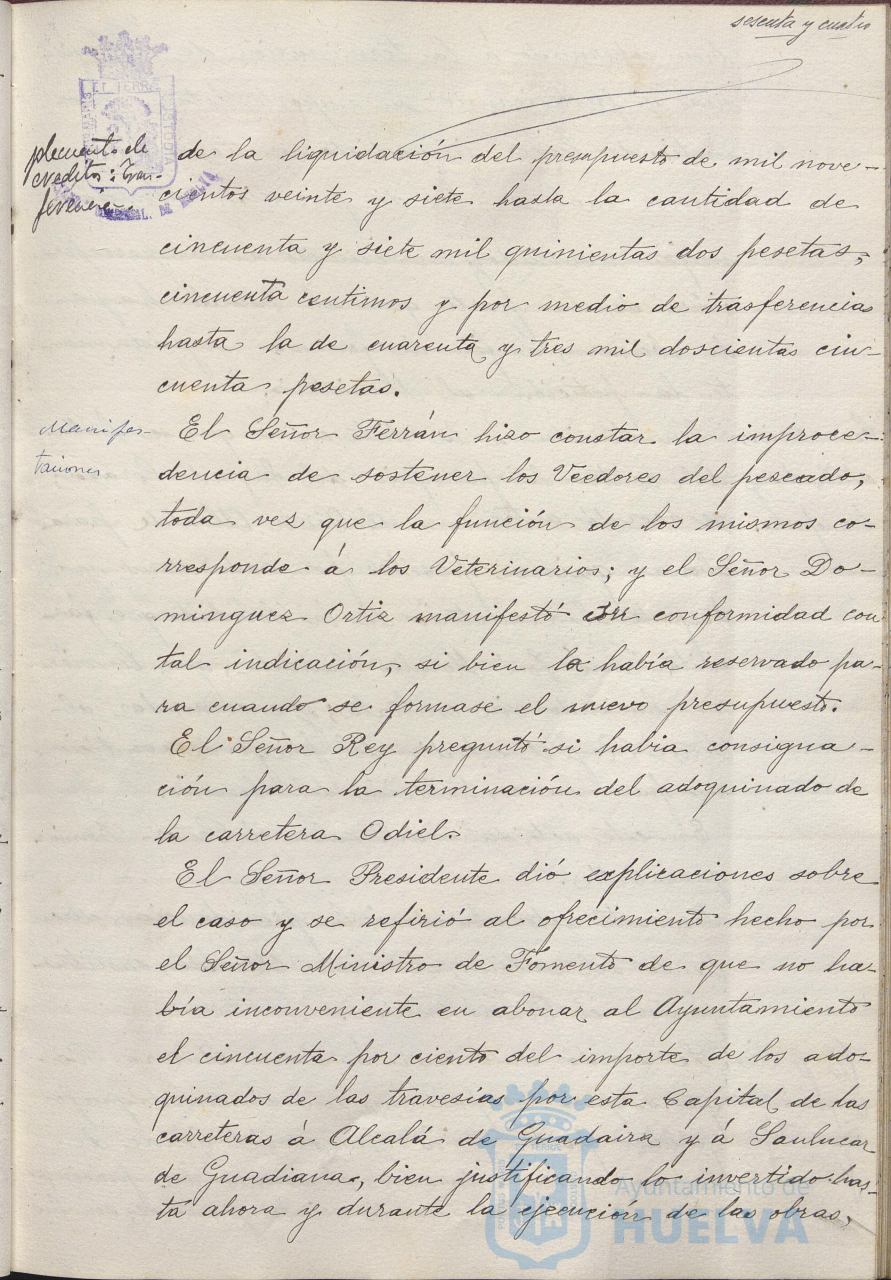 sesenta y cuatro
plemento de
credito: Tran-
ferencia.
de la liquidación del presupuesto de mil nove-
cientos veinte y siete hasta la cantidad de
cincuenta y siete mil quinientas dos pesetas,
cincuenta centimos y por medio de trasferencias
hasta la de cuarenta y tres mil doscientas cin-
cuenta pesetas.
Manifes-
taciones
El Señor Ferrán hizo constar la improce-
dencia de sostener los Veedores del pescado,
toda vez que la función de los mismos co-
rresponde á los Veterinarios; y el Señor Do-
minguez Ortiz manifestó su conformidad con
tal indicación, si bien la había reservado pa-
ra cuando se formase el nuevo presupuesto.
El Señor Rey preguntó si había consigna-
ción para la terminación del adoquinado de
la carretera Odiel.
El Señor Presidente dió explicaciones sobre
el caso y se refirió al ofrecimiento hecho por
el Señor Ministro de Fomento de que no ha-
bía inconveniente en abonar al Ayuntamiento
el cincuenta por ciento del importe de los ado-
quinados de las travesías por esta Capital de las
carreteras á Alcalá de Guadaira y á Sanlucar
de Guadiana, bien justificando lo invertido has-
ta ahora y durante la ejecución de las obras,
Ayuntamiento de
HUELVA